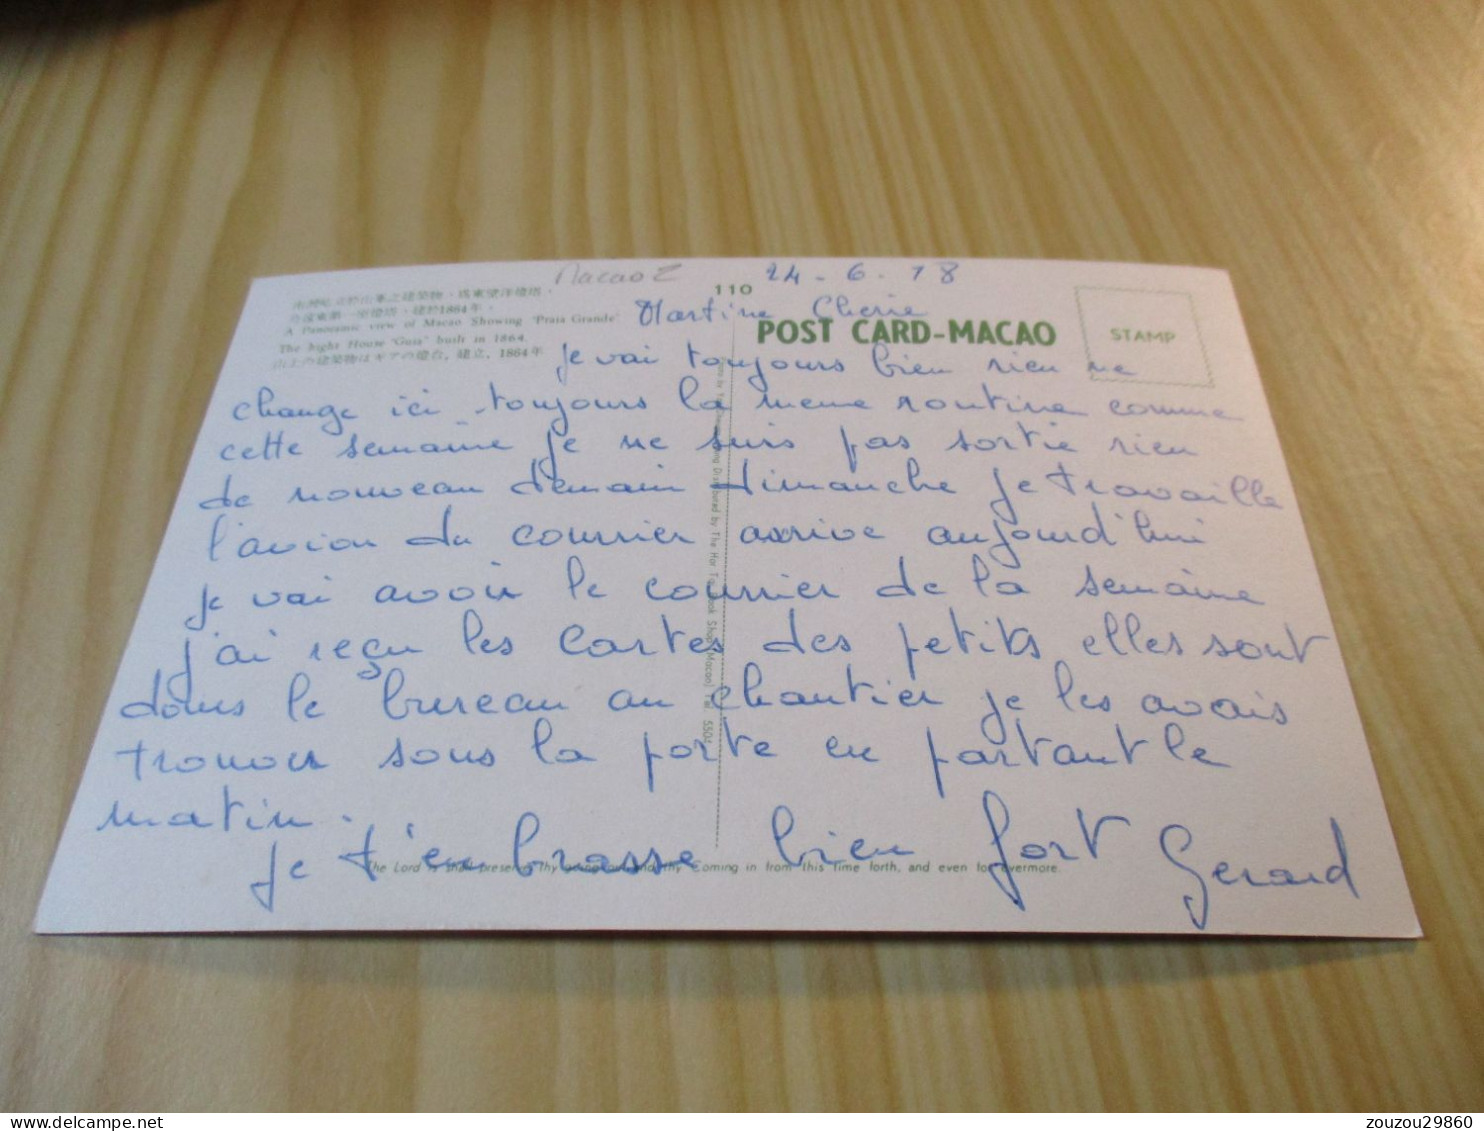 Macao 2
24 - 6 - 78
110
Martine Cherie
A Panoramic view of Macao Showing 'Praia Grande'
The light House 'Guia' built in 1864.
山上の建築物はギアの燈台, 建立, 1864年
POST CARD-MACAO
STAMP
je vai toujours bien rien ne
change ici toujours la meme routine comme
cette semaine je ne suis pas sortie rien
de nouveau demain dimanche je travaille
l'avion du courrier arrive aujourd'hui
je vai avoir le courrier de la semaine
j'ai reçu les cartes des petits elles sont
dans le bureau au chantier je les avais
trouver sous la porte en partant le
matin.
je t'embrasse bien fort Gerard
The Lord shall preserve thy going out and thy Coming in from this time forth, and even for evermore.
zouzou29860